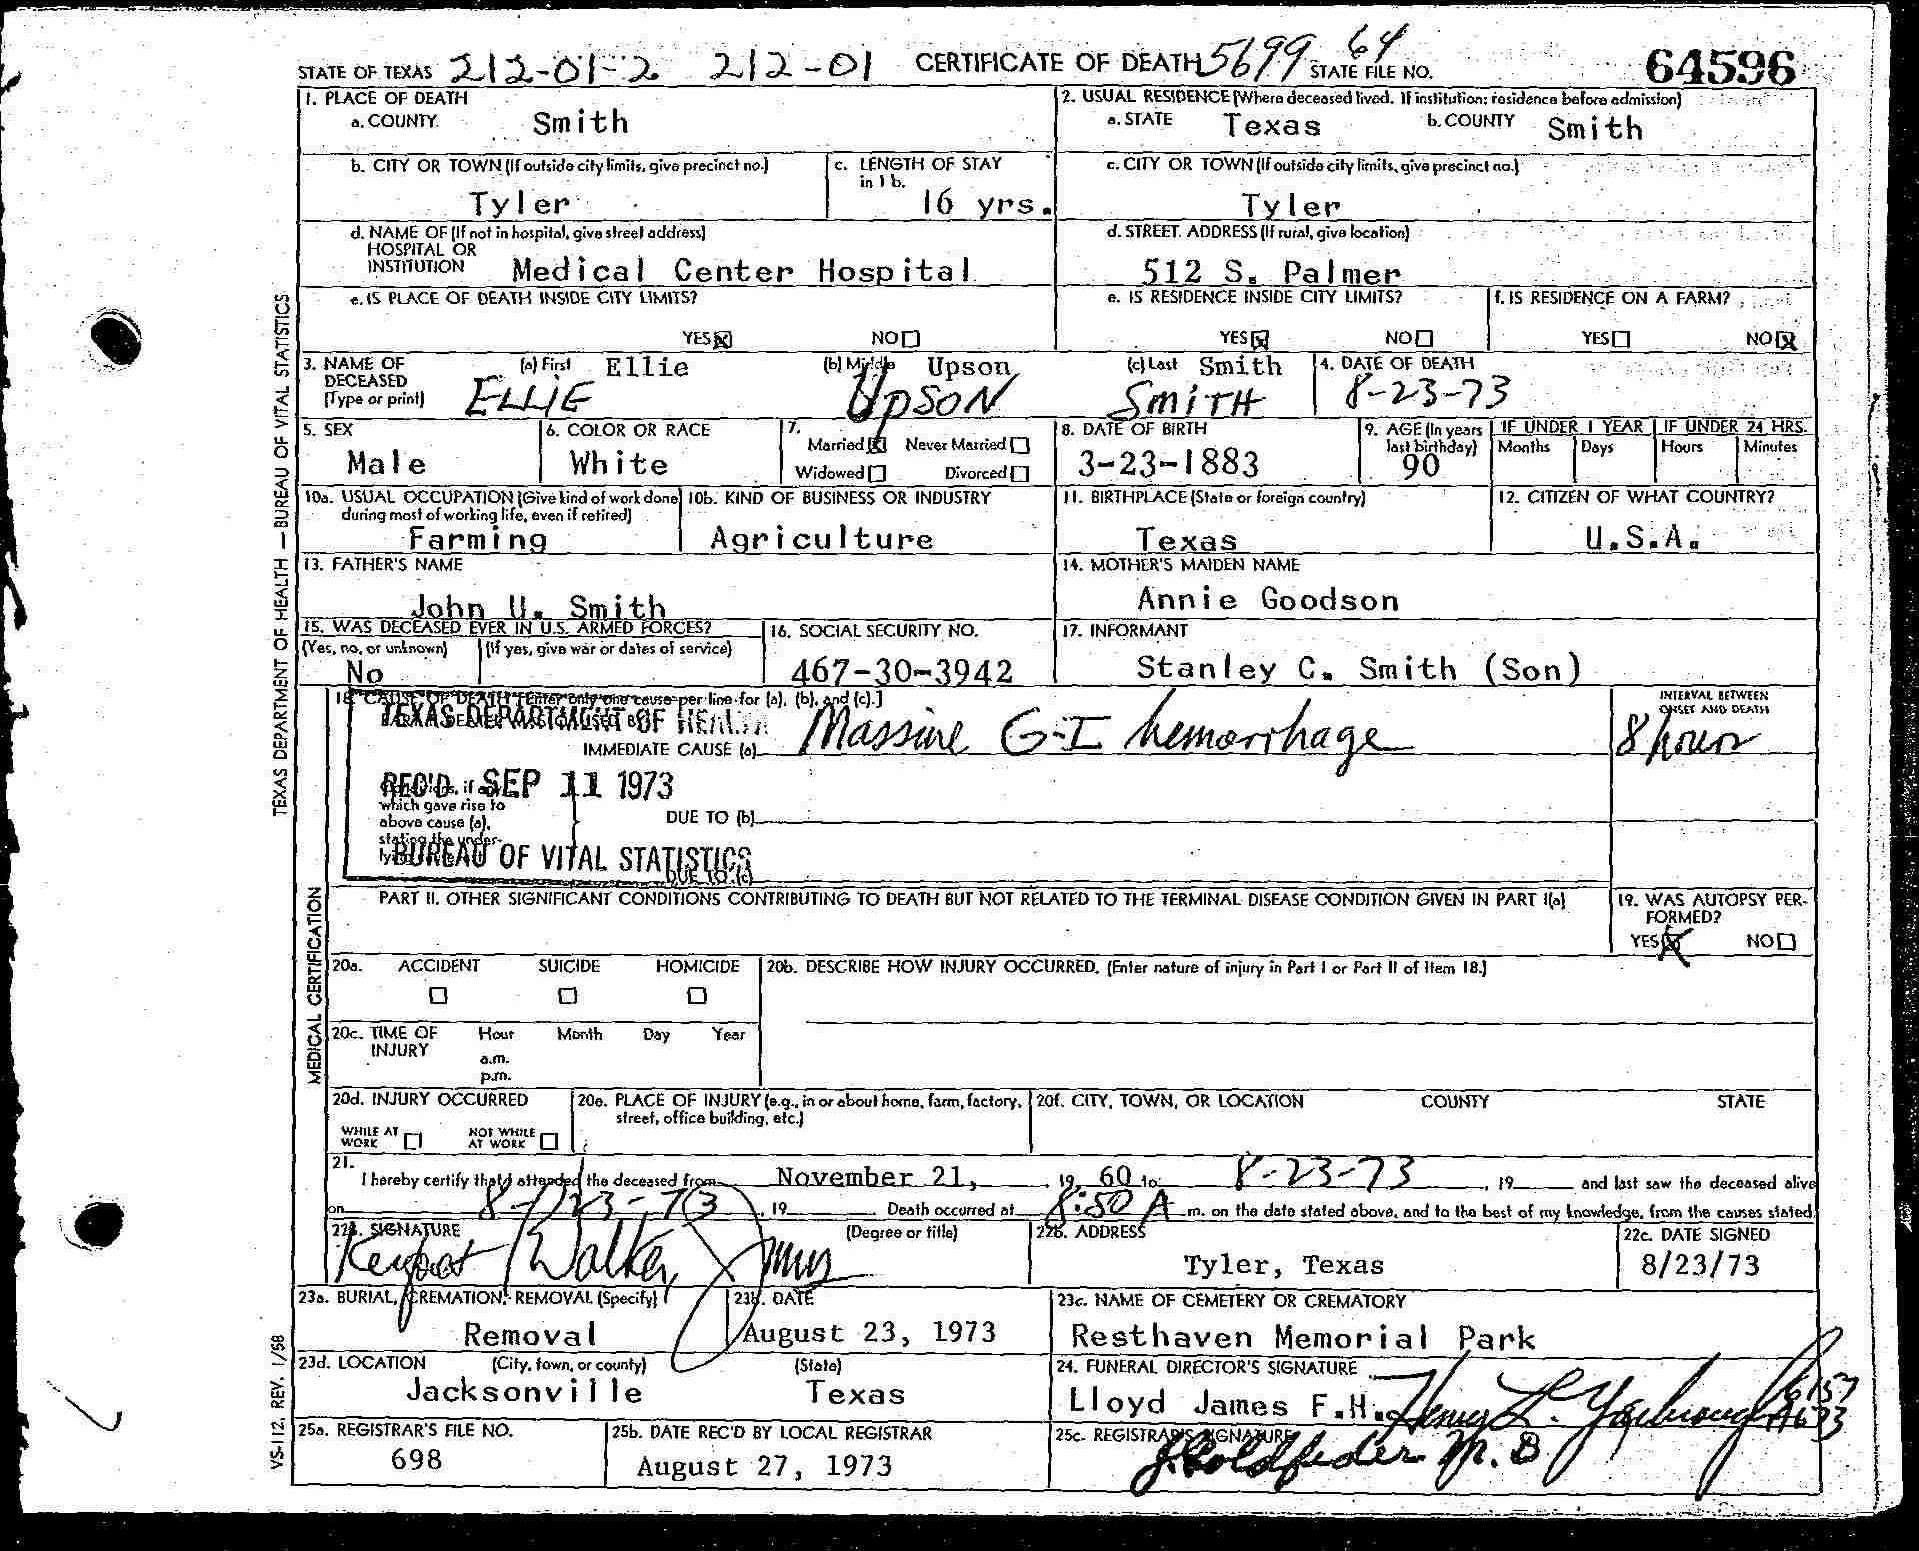 STATE OF TEXAS 212-01-2 212-01 CERTIFICATE OF DEATH 5699 64 STATE FILE NO. 64596
1. PLACE OF DEATH
a. COUNTY Smith
2. USUAL RESIDENCE (Where deceased lived. If institution: residence before admission)
a. STATE Texas b. COUNTY Smith
b. CITY OR TOWN (If outside city limits, give precinct no.)
Tyler
c. LENGTH OF STAY
in 1b.
16 yrs.
c. CITY OR TOWN (If outside city limits, give precinct no.)
Tyler
d. NAME OF (If not in hospital, give street address)
HOSPITAL OR
INSTITUTION Medical Center Hospital
d. STREET ADDRESS (If rural, give location)
512 S. Palmer
e. IS PLACE OF DEATH INSIDE CITY LIMITS?
YES☒ NO☐
e. IS RESIDENCE INSIDE CITY LIMITS?
YES☒ NO☐
f. IS RESIDENCE ON A FARM?
YES☐ NO☒
3. NAME OF (a) First Ellie (b) Middle Upson (c) Last Smith
DECEASED
(Type or print) ELLIE UPSON SMITH
4. DATE OF DEATH
8-23-73
5. SEX
Male
6. COLOR OR RACE
White
7.
Married☒ Never Married☐
Widowed☐ Divorced☐
8. DATE OF BIRTH
3-23-1883
9. AGE (In years
last birthday)
90
IF UNDER 1 YEAR
Months Days
IF UNDER 24 HRS.
Hours Minutes
10a. USUAL OCCUPATION (Give kind of work done
during most of working life, even if retired)
Farming
10b. KIND OF BUSINESS OR INDUSTRY
Agriculture
11. BIRTHPLACE (State or foreign country)
Texas
12. CITIZEN OF WHAT COUNTRY?
U.S.A.
13. FATHER'S NAME
John U. Smith
14. MOTHER'S MAIDEN NAME
Annie Goodson
15. WAS DECEASED EVER IN U.S. ARMED FORCES?
(Yes, no, or unknown) (If yes, give war or dates of service)
No
16. SOCIAL SECURITY NO.
467-30-3942
17. INFORMANT
Stanley C. Smith (Son)
18. CAUSE OF DEATH [Enter only one cause per line for (a), (b), and (c).]
TEXAS DEPARTMENT OF HEALTH
IMMEDIATE CAUSE (a) Massive G-I hemorrhage
INTERVAL BETWEEN
ONSET AND DEATH
8 hours
REC'D SEP 11 1973
Conditions, if any,
which gave rise to
above cause (a),
stating the under-
lying
DUE TO (b)
BUREAU OF VITAL STATISTICS
DUE TO (c)
PART II. OTHER SIGNIFICANT CONDITIONS CONTRIBUTING TO DEATH BUT NOT RELATED TO THE TERMINAL DISEASE CONDITION GIVEN IN PART I(a)
19. WAS AUTOPSY PER-
FORMED?
YES☒ NO☐
20a. ACCIDENT SUICIDE HOMICIDE
☐ ☐ ☐
20b. DESCRIBE HOW INJURY OCCURRED. (Enter nature of injury in Part I or Part II of Item 18.)
20c. TIME OF Hour Month Day Year
INJURY
a.m.
p.m.
20d. INJURY OCCURRED
WHILE AT
WORK ☐
NOT WHILE
AT WORK ☐
20e. PLACE OF INJURY (e.g., in or about home, farm, factory,
street, office building, etc.)
20f. CITY, TOWN, OR LOCATION COUNTY STATE
21.
I hereby certify that I attended the deceased from November 21, 19 60 to 8-23-73, 19 and last saw the deceased alive
on 8-23-73, 19 Death occurred at 8:50 A m. on the date stated above, and to the best of my knowledge, from the causes stated.
22a. SIGNATURE (Degree or title)
Walker
22b. ADDRESS
Tyler, Texas
22c. DATE SIGNED
8/23/73
23a. BURIAL, CREMATION, REMOVAL (Specify)
Removal
23b. DATE
August 23, 1973
23c. NAME OF CEMETERY OR CREMATORY
Resthaven Memorial Park
23d. LOCATION (City, town, or county) (State)
Jacksonville Texas
24. FUNERAL DIRECTOR'S SIGNATURE
Lloyd James F.H. Henry L. Yarbrough
25a. REGISTRAR'S FILE NO.
698
25b. DATE REC'D BY LOCAL REGISTRAR
August 27, 1973
25c. REGISTRAR'S SIGNATURE
J. Goldfeder M.D
TEXAS DEPARTMENT OF HEALTH — BUREAU OF VITAL STATISTICS
MEDICAL CERTIFICATION
VS-112, REV. 1/58